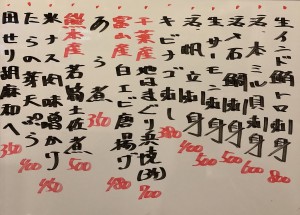 生インド鮪トロ刺身 800
活、本ミル貝刺身 600
活〆石鯛刺身 500
生サーモン刺身 500
活帆立刺身 400
キビナゴ刺し 380
千葉産 地はまぐり浜焼(2ケ) 700
富山産 白エビ唐揚げ 480
あら煮 350
熊本産 若筍土佐煮 500
米ナス肉味噌かけ 450
たらの芽天ぷら 400
田せり胡麻和へ 350